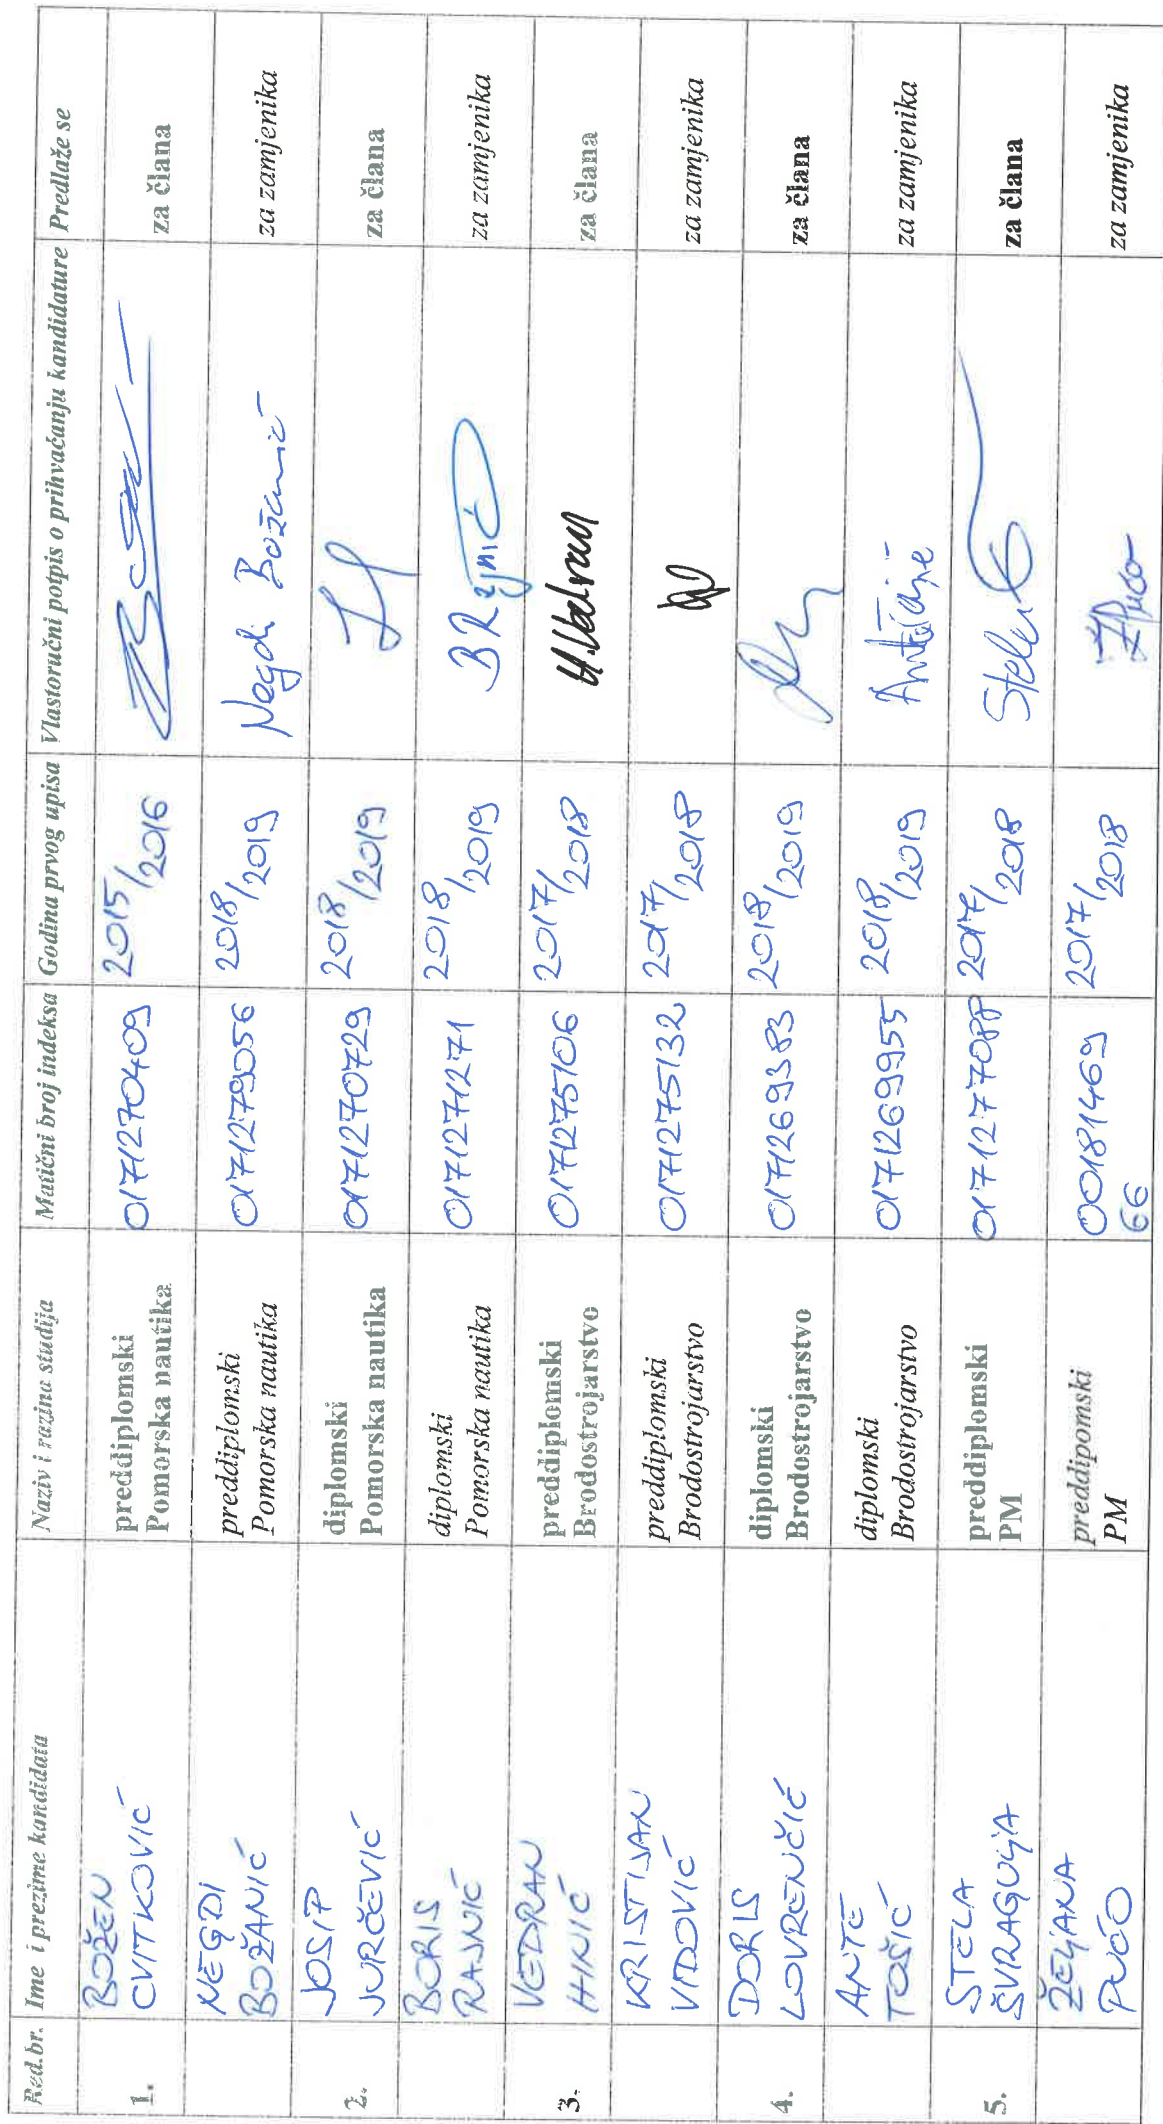 Red.br. Ime i prezime kandidata Naziv i razina studija Matični broj indeksa Godina prvog upisa Vlastoručni potpis o prihvaćanju kandidature Predlaže se
1. BOŽEN CVITKOVIĆ preddiplomski Pomorska nautika 0171270409 2015/2016 za člana
NEGDI BOŽANIĆ preddiplomski Pomorska nautika 0171279056 2018/2019 Negdi Božanić za zamjenika
2. JOSIP JURČEVIĆ diplomski Pomorska nautika 0171270729 2018/2019 za člana
BORIS RAJNIĆ diplomski Pomorska nautika 0171271271 2018/2019 B Rajnić za zamjenika
3. VEDRAN HINIĆ preddiplomski Brodostrojarstvo 0171275106 2017/2018 H. Vedran za člana
KRISTIJAN VIDOVIĆ preddiplomski Brodostrojarstvo 0171275132 2017/2018 za zamjenika
4. DORIS LOVRENČIĆ diplomski Brodostrojarstvo 0171269383 2018/2019 za člana
ANTE TOŠIĆ diplomski Brodostrojarstvo 0171269955 2018/2019 za zamjenika
5. STELA ŠVRAGULJA preddiplomski PM 0171277088 2017/2018 za člana
ŽELJANA PUĆO preddipomski PM 0018146966 2017/2018 za zamjenika